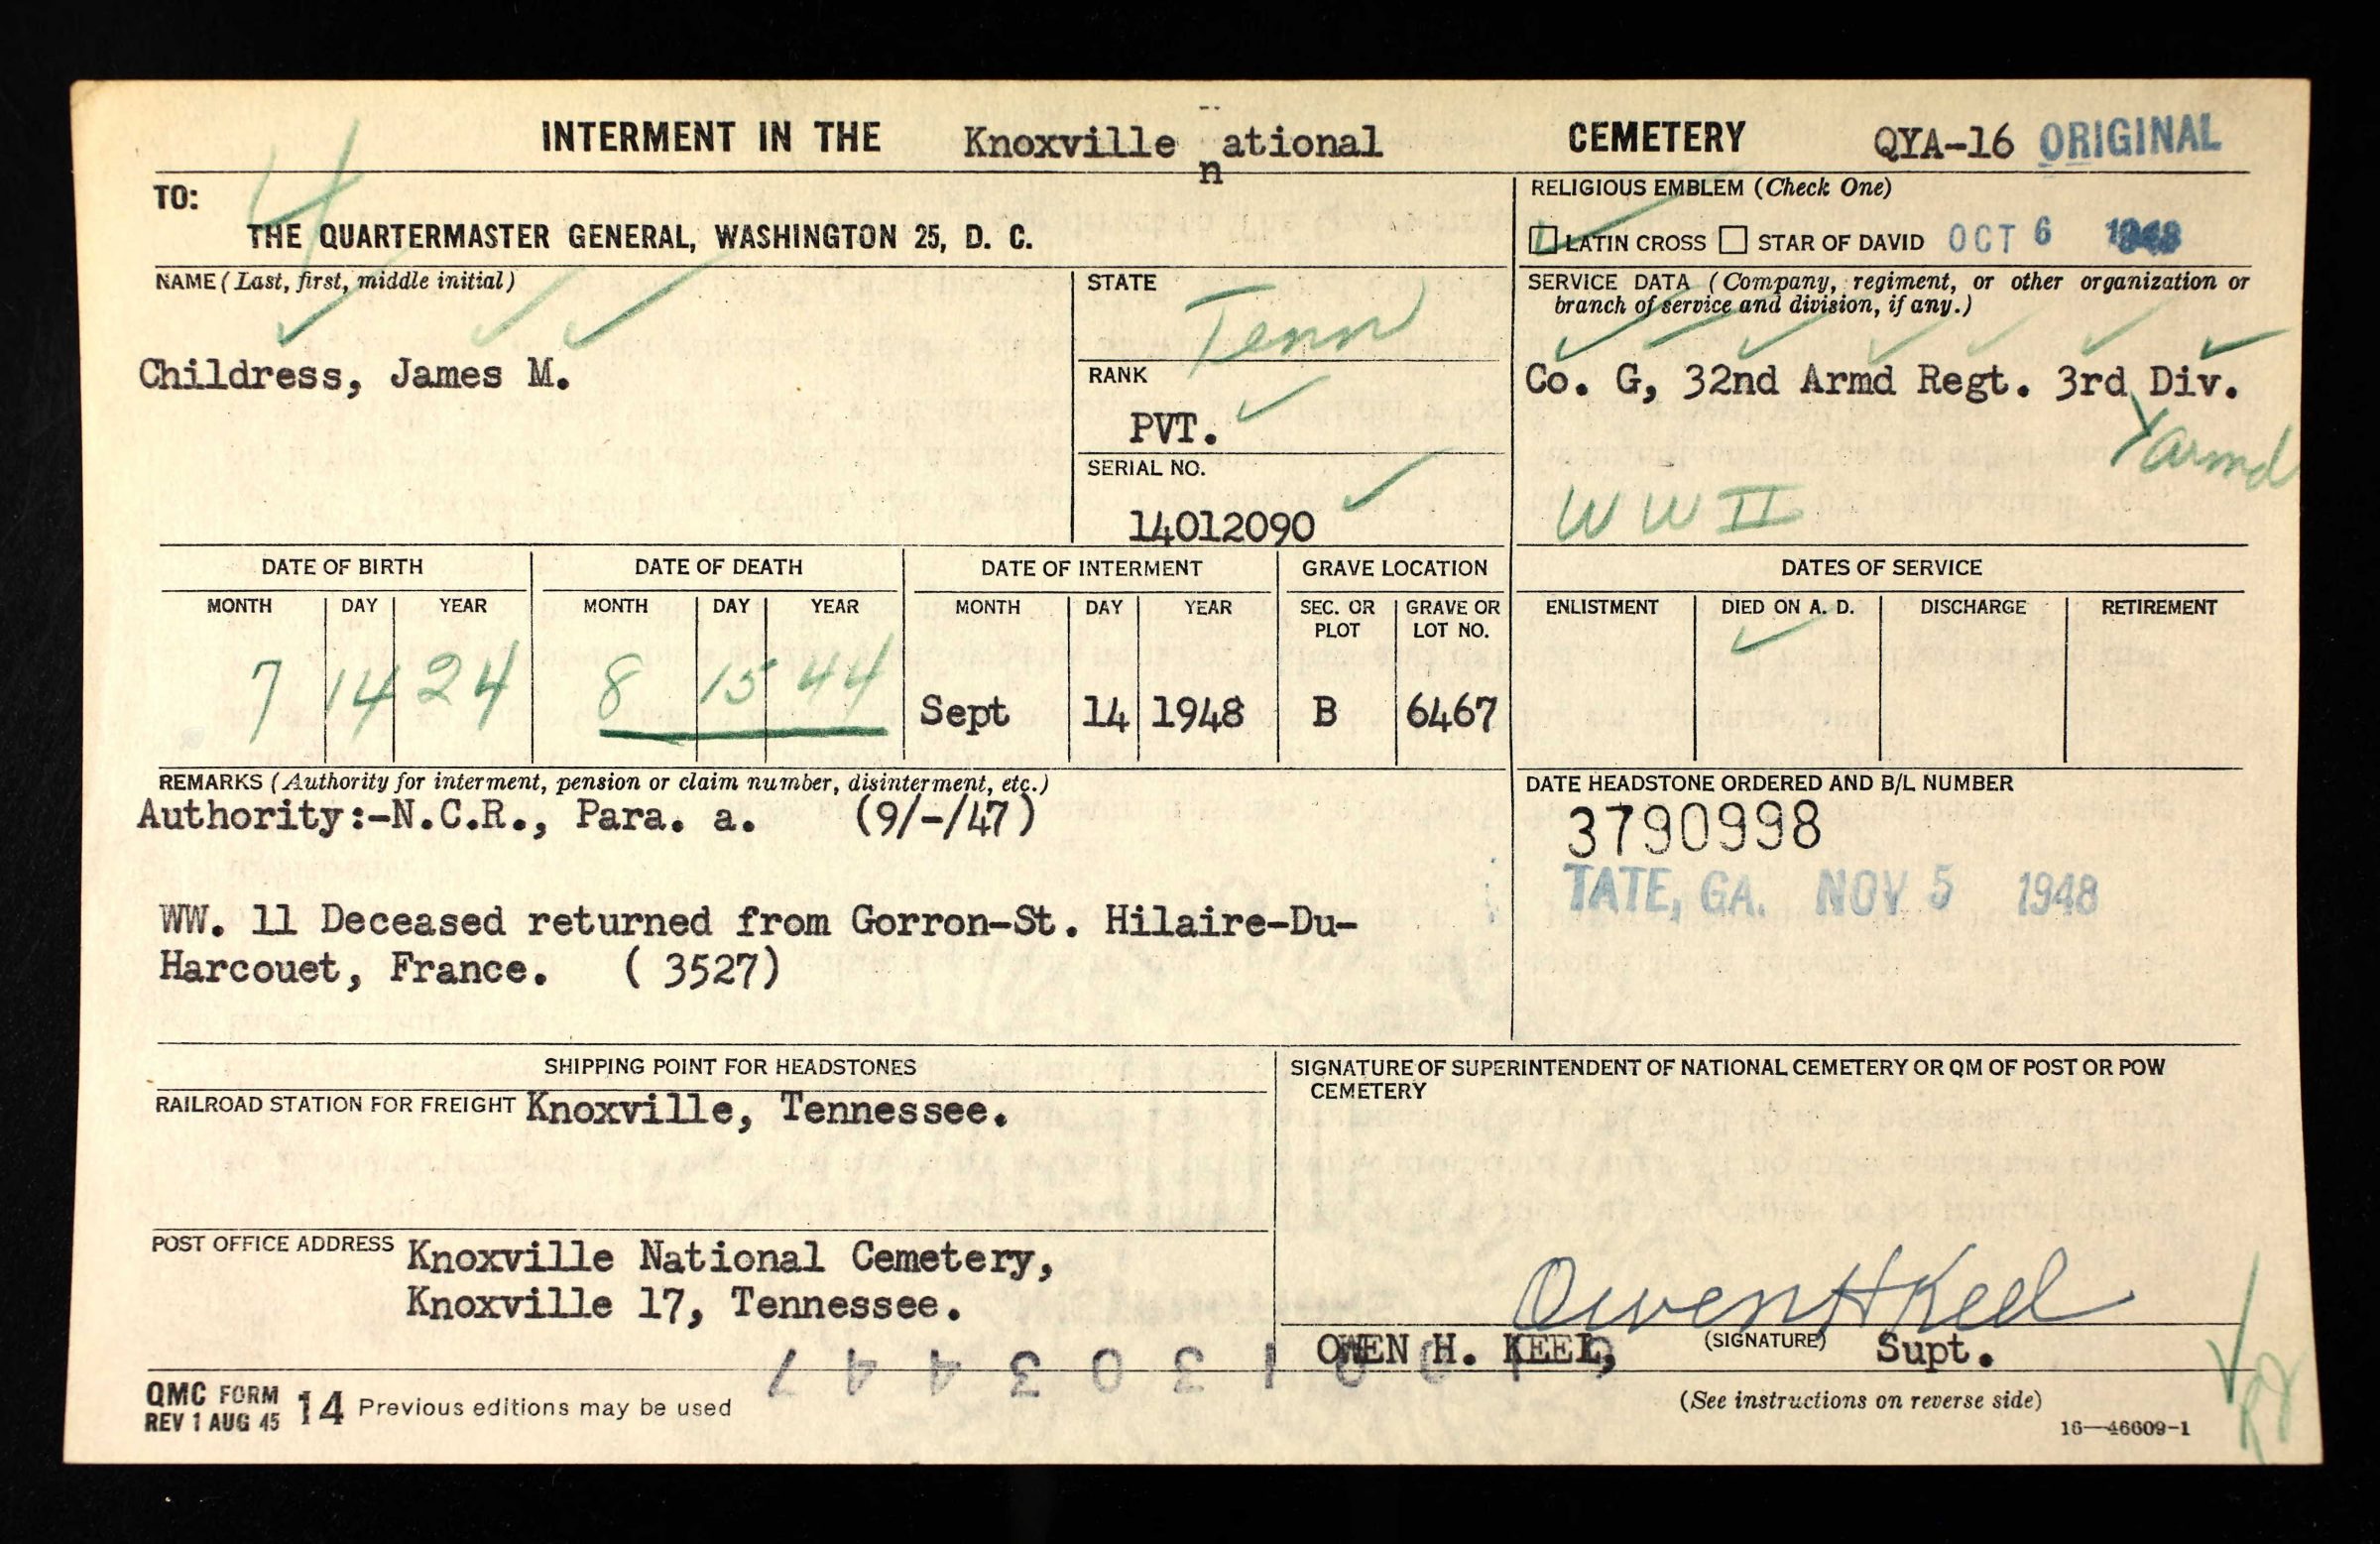 INTERMENT IN THE Knoxville national CEMETERY QYA-16 ORIGINAL
TO:
THE QUARTERMASTER GENERAL, WASHINGTON 25, D. C.
RELIGIOUS EMBLEM (Check One)
LATIN CROSS STAR OF DAVID OCT 6 1948
NAME (Last, first, middle initial)
Childress, James M.
STATE
Tenn
RANK
PVT.
SERIAL NO.
14012090
SERVICE DATA (Company, regiment, or other organization or
branch of service and division, if any.)
Co. G, 32nd Armd Regt. 3rd Div.
Armd
WW II
DATE OF BIRTH DATE OF DEATH DATE OF INTERMENT GRAVE LOCATION DATES OF SERVICE
MONTH DAY YEAR MONTH DAY YEAR MONTH DAY YEAR SEC. OR PLOT GRAVE OR LOT NO. ENLISTMENT DIED ON A. D. DISCHARGE RETIREMENT
7 14 24 8 15 44 Sept 14 1948 B 6467
REMARKS (Authority for interment, pension or claim number, disinterment, etc.)
Authority:-N.C.R., Para. a. (9/-/47)
WW. 11 Deceased returned from Gorron-St. Hilaire-Du-
Harcouet, France. ( 3527)
DATE HEADSTONE ORDERED AND B/L NUMBER
3790998
TATE, GA. NOV 5 1948
SHIPPING POINT FOR HEADSTONES
RAILROAD STATION FOR FREIGHT Knoxville, Tennessee.
POST OFFICE ADDRESS Knoxville National Cemetery,
Knoxville 17, Tennessee.
SIGNATURE OF SUPERINTENDENT OF NATIONAL CEMETERY OR QM OF POST OR POW
CEMETERY
Owen H Keel
OWEN H. KEEL, (SIGNATURE) Supt.
QMC FORM 14 Previous editions may be used
REV 1 AUG 45
(See instructions on reverse side)
16—46609-1